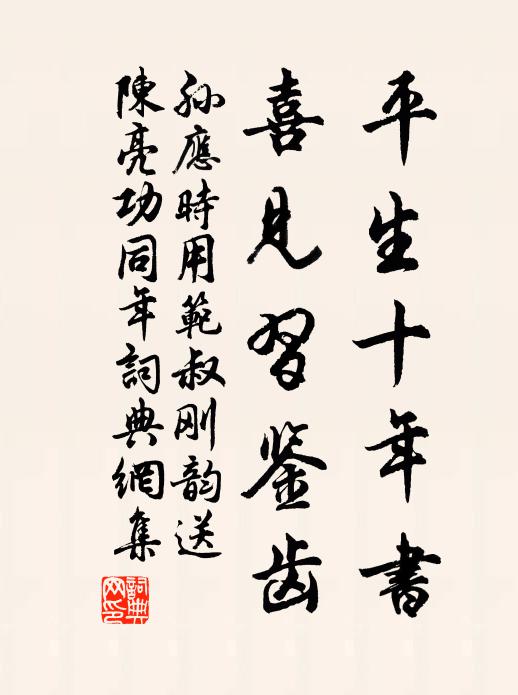 平生十年書
喜見習鑿齿
孙應時用範叔刚韵送
陳亮功同年詞典網集
詞典